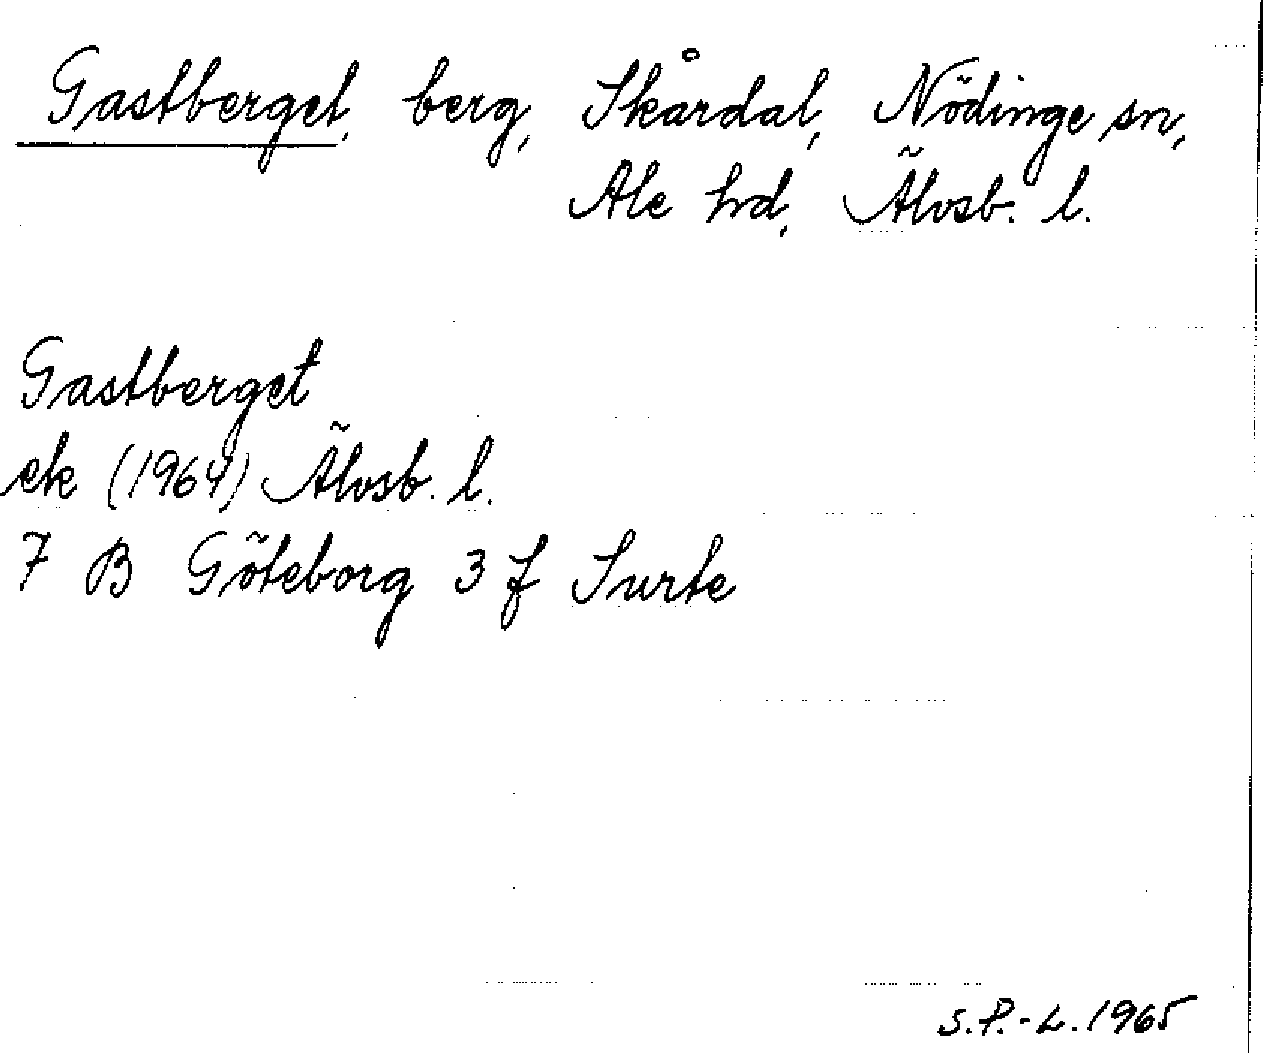 Gastberget, berg, Skårdal, Nödinge sn,
Ale hd, Älvsb. l.
Gastberget
ek (1964) Älvsb. l.
7 B Göteborg 3 f Surte
S.P.-L. 1965